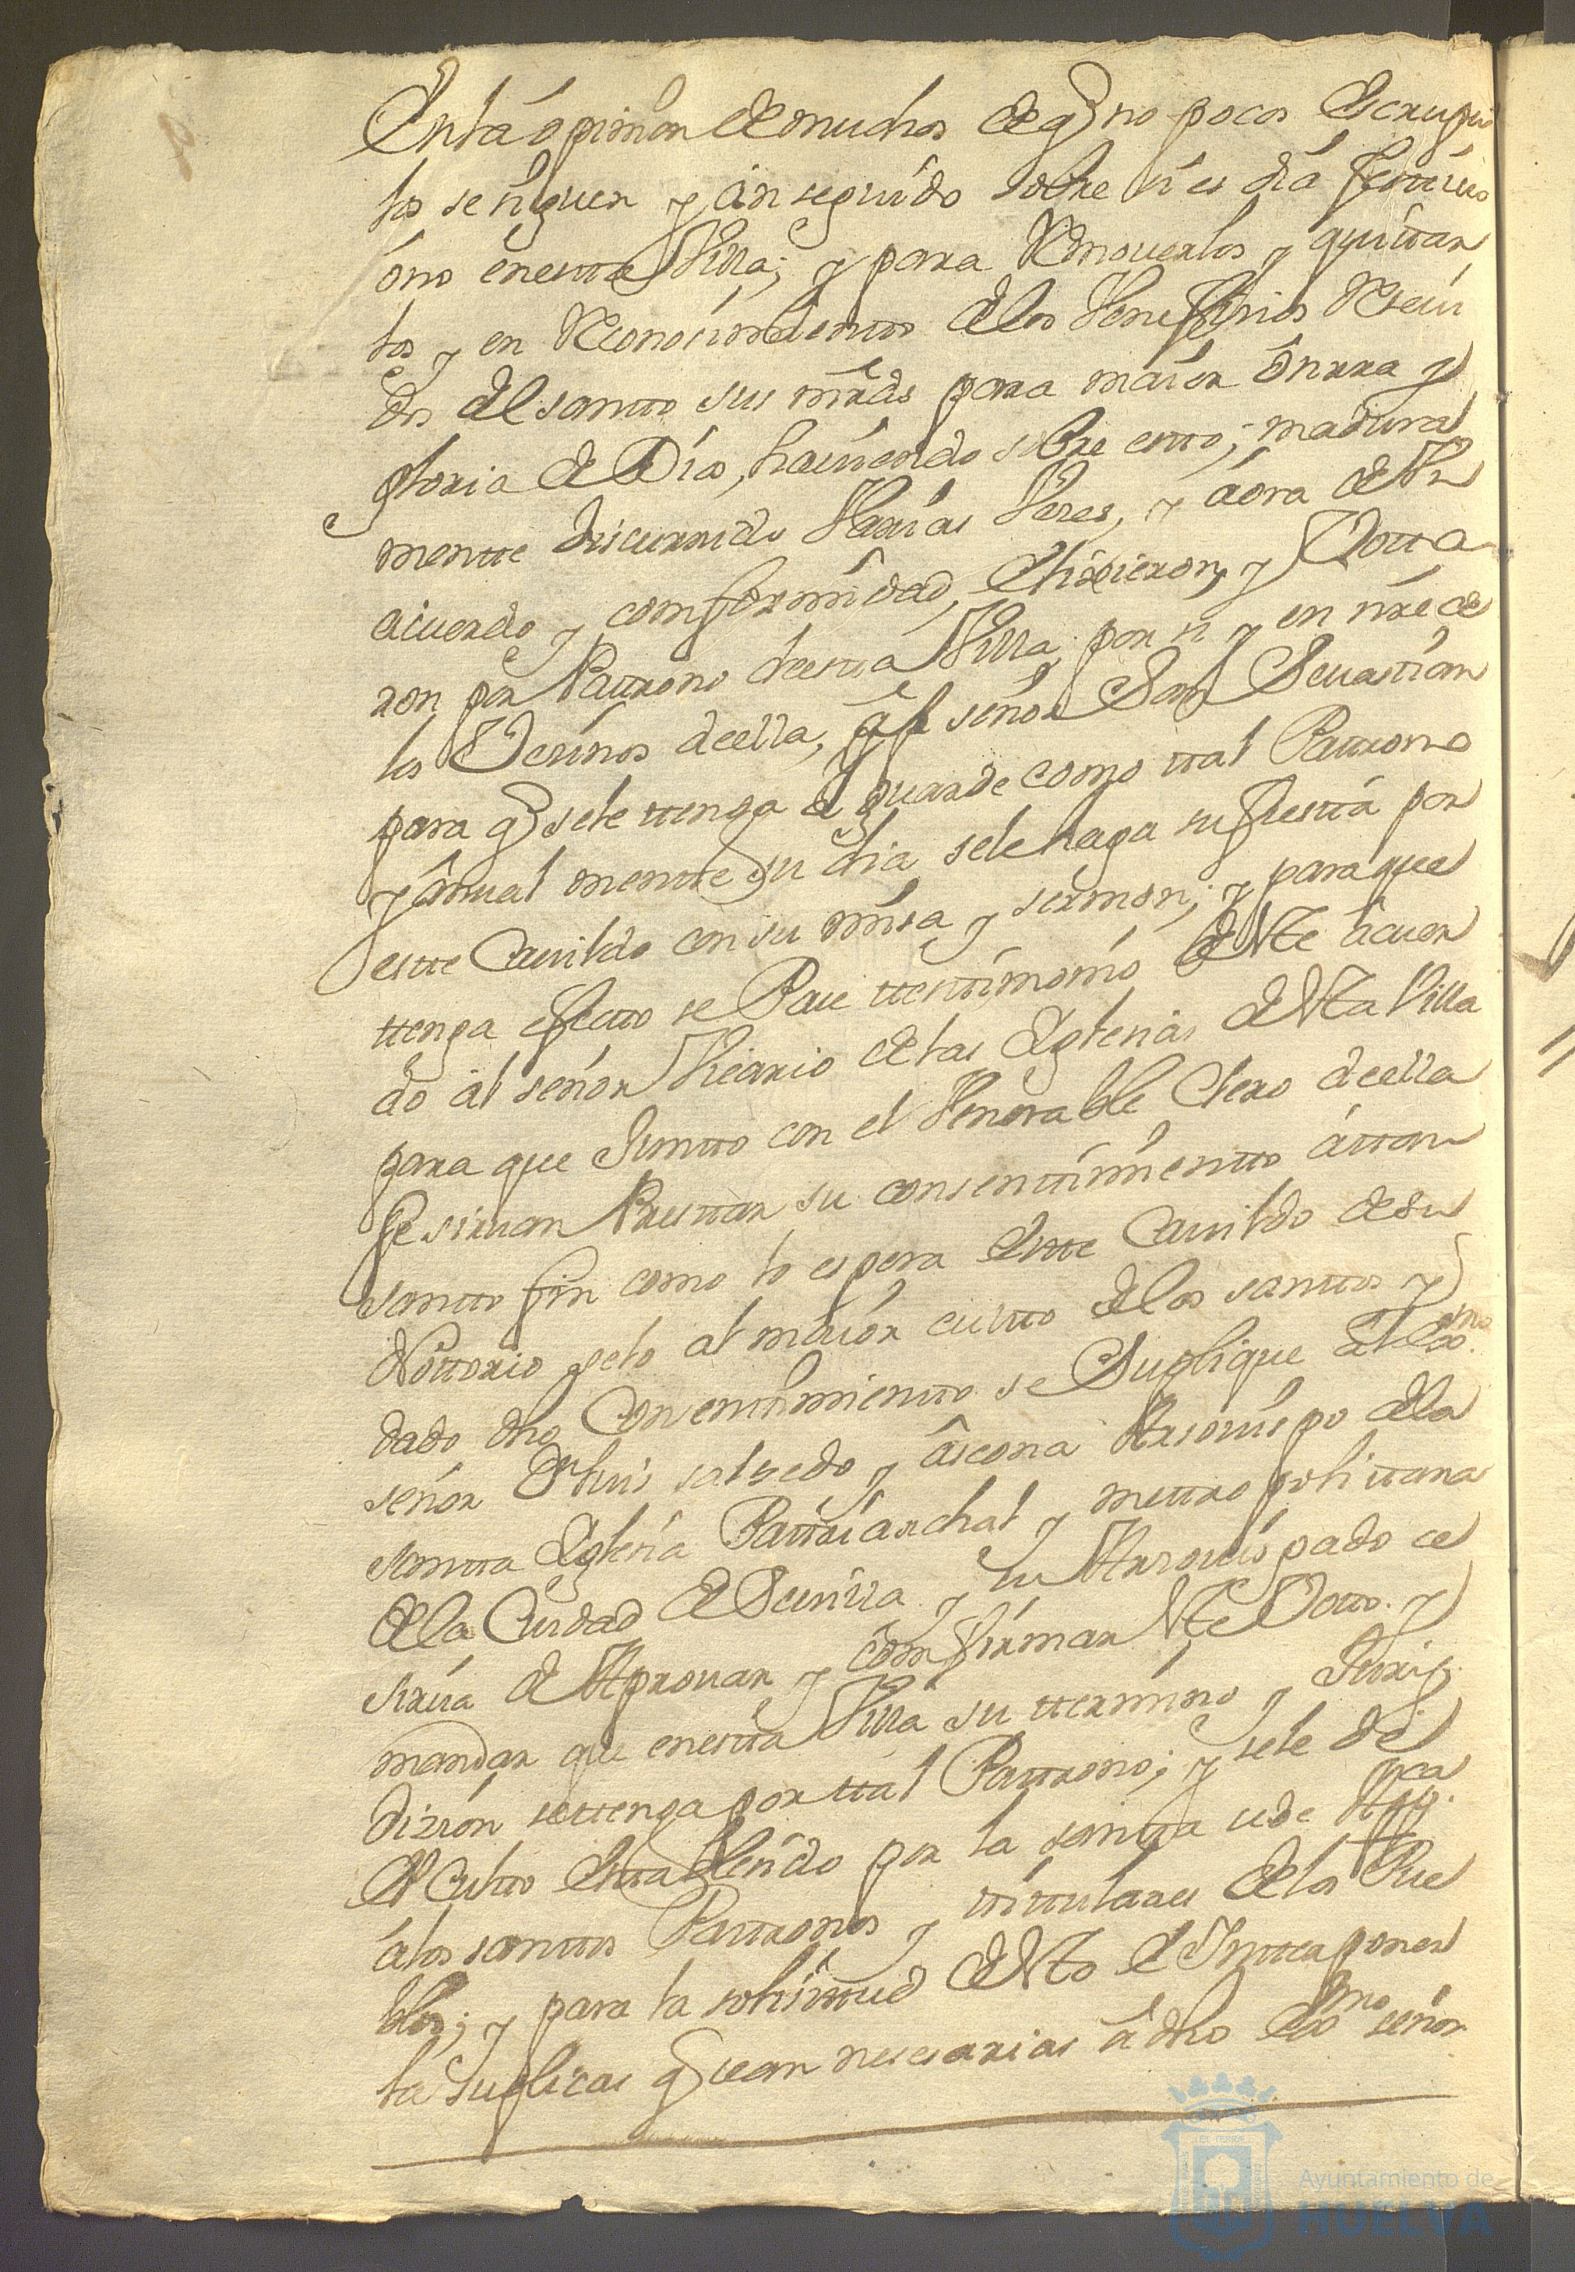 En la opinion de muchos de q no pocos escrupu
los se siguen y an seguido sobre si es dia festivo
ô no en esta Villa; y para Removerlos y quittar
los y en Reconocimiento de los Veneficios Recivi
dos del santto sus mrds para maior onrra y
gloria de Dios, haviendo sobre estto, madura
mentte discurrido Varias Veses, y aora de Un
acuerdo y comformidad, Elixieron, y Votta
ron por Pattrono desta Villa por si y en nre de
los Vesinos de ella, al señor San Sevastian
para q se le ttenga e guarde como ttal Pattrono
y Anualmentte su dia se le haga su fiesta por
estte Cavildo con su misa y sermon; y para que
ttenga efectto se Pase ttesttimonio de este acuer
do al señor Vicario de las Yglesias de esta Villa
para que Juntto con el Venerable Clero de ella
se sirvan Presttar su consenttimientto â ttan
santto fin como lo espera Estte Cavildo de su
Nottorio zelo al maior cultto de los santtos y
dado dho Consenttimientto se Suplique al Exmo
señor Dn Luis salsedo y Ascona Arsovispo de la
santta Yglesia Pattriarchal y mettropolittana
de la Ciudad de Sevilla y su Arzovispado se
sirva de Aprovar y comfirmar este Votto y
mandar que en esta Villa su ttermino y Juris
dizion se ttenga por ttal Pattrono; y se le dé
el Cultto Esttablesido por la santta sede Appca
a los santtos Pattronos y ttittulares de los Pue
blos; y para la solisittud de esto e Ynterponer
las suplicas q sean nesesarias a dho Exmo señor
Ayuntamiento de
HUELVA